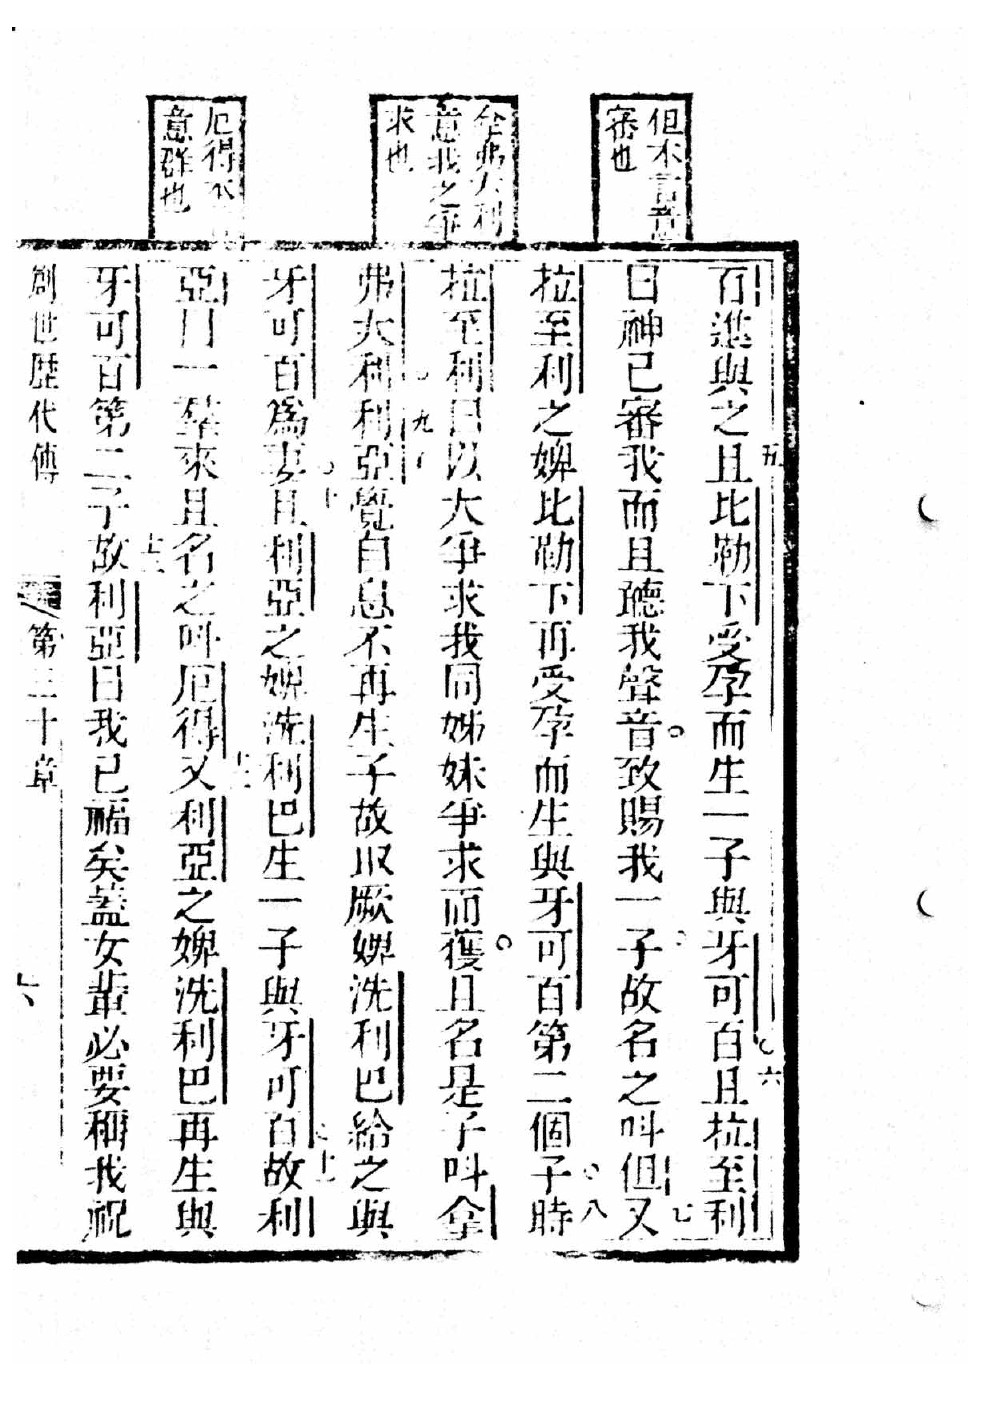 但本言音
審也
拿弗大利
意我之爭
求也
厄得本
意群也
百進與之且比勒下受孕而生一子與牙可百且拉至利
五
六
曰神已審我而且聽我聲音致賜我一子故名之呌但又
七
拉至利之婢比勒下再受孕而生與牙可百第二個子時
八
拉至利曰以大爭求我同姊妹爭求而獲且名是子呌拿
弗大利利亞覺自息不再生子故取厥婢洗利巴給之與
九
牙可百爲妻且利亞之婢洗利巴生一子與牙可百故利
十
十一
亞曰一羣來且名之呌厄得又利亞之婢洗利巴再生與
十二
牙可百第二子故利亞曰我已福矣蓋女輩必要稱我祝
十三
創世歷代傳
第三十章
六